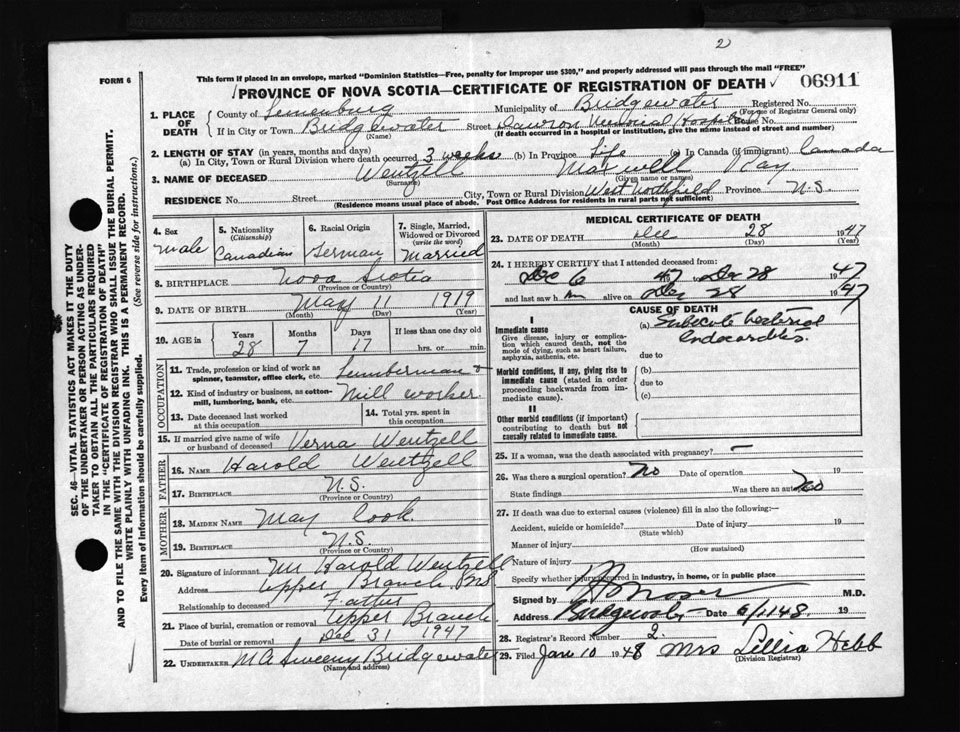 2
FORM 6
This form if placed in an envelope, marked "Dominion Statistics—Free, penalty for improper use $300," and properly addressed will pass through the mail "FREE"
PROVINCE OF NOVA SCOTIA—CERTIFICATE OF REGISTRATION OF DEATH 06911
1. PLACE OF DEATH
County of Lunenburg Municipality of Bridgewater Registered No.
(For use of Registrar General only)
If in City or Town Bridgewater Street Dawson Memorial Hospital House No.
(Name) (If death occurred in a hospital or institution, give the name instead of street and number)
2. LENGTH OF STAY (in years, months and days)
(a) In City, Town or Rural Division where death occurred 3 weeks (b) In Province Life (c) In Canada (if immigrant) Canada
3. NAME OF DECEASED Wentzell Maxwell Ray
(Surname) (Given name or names)
RESIDENCE No. Street City, Town or Rural Division West Northfield Province N.S.
(Residence means usual place of abode. Post Office Address for residents in rural parts not sufficient)
4. Sex
Male
5. Nationality
(Citizenship)
Canadian
6. Racial Origin
German
7. Single, Married, Widowed or Divorced
(write the word)
Married
8. BIRTHPLACE Nova Scotia
(Province or Country)
9. DATE OF BIRTH May 11 1919
(Month) (Day) (Year)
10. AGE in Years Months Days If less than one day old
28 7 17 hrs. or min.
OCCUPATION
11. Trade, profession or kind of work as spinner, teamster, office clerk, etc. Lumberman &
12. Kind of industry or business, as cotton-mill, lumbering, bank, etc. Mill worker
13. Date deceased last worked at this occupation
14. Total yrs. spent in this occupation
15. If married give name of wife or husband of deceased Verna Wentzell
FATHER
16. NAME Harold Wentzell
17. BIRTHPLACE N.S.
(Province or Country)
MOTHER
18. MAIDEN NAME May Cook
19. BIRTHPLACE N.S.
(Province or Country)
20. Signature of informant Mr Harold Wentzell
Address Upper Branch NS
Relationship to deceased Father
21. Place of burial, cremation or removal Upper Branch
Date of burial or removal Dec 31 1947
22. UNDERTAKER M A Sweeny Bridgewater
(Name and address)
MEDICAL CERTIFICATE OF DEATH
23. DATE OF DEATH Dec 28 1947
(Month) (Day) (Year)
24. I HEREBY CERTIFY that I attended deceased from:
Dec 6 1947 to Dec 28 1947
and last saw h im alive on Dec 28 1947
CAUSE OF DEATH
I
Immediate cause
Give disease, injury or complication which caused death, not the mode of dying, such as heart failure, asphyxia, asthenia, etc.
(a) Subacute bacterial Endocarditis.
due to
Morbid conditions, if any, giving rise to immediate cause (stated in order proceeding backwards from immediate cause).
(b)
due to
(c)
II
Other morbid conditions (if important) contributing to death but not causally related to immediate cause.
25. If a woman, was the death associated with pregnancy? —
26. Was there a surgical operation? No Date of operation 19
State findings Was there an autopsy? No
27. If death was due to external causes (violence) fill in also the following:—
Accident, suicide or homicide? Date of injury 19
(State which)
Manner of injury
(How sustained)
Nature of injury
Specify whether injury occurred in industry, in home, or in public place
Signed by Moser M.D.
Address Bridgewater Date 6/1/48. 19
28. Registrar's Record Number 2.
29. Filed Jan 10 1948 Mrs Lillia Hebb
(Division Registrar)
SEC. 46—VITAL STATISTICS ACT MAKES IT THE DUTY
OF THE UNDERTAKER OR PERSON ACTING AS UNDERTAKER TO OBTAIN ALL THE PARTICULARS REQUIRED
IN THE "CERTIFICATE OF REGISTRATION OF DEATH"
AND TO FILE THE SAME WITH THE DIVISION REGISTRAR WHO SHALL ISSUE THE BURIAL PERMIT.
WRITE PLAINLY WITH UNFADING INK. THIS IS A PERMANENT RECORD.
Every item of information should be carefully supplied. (See reverse side for instructions.)